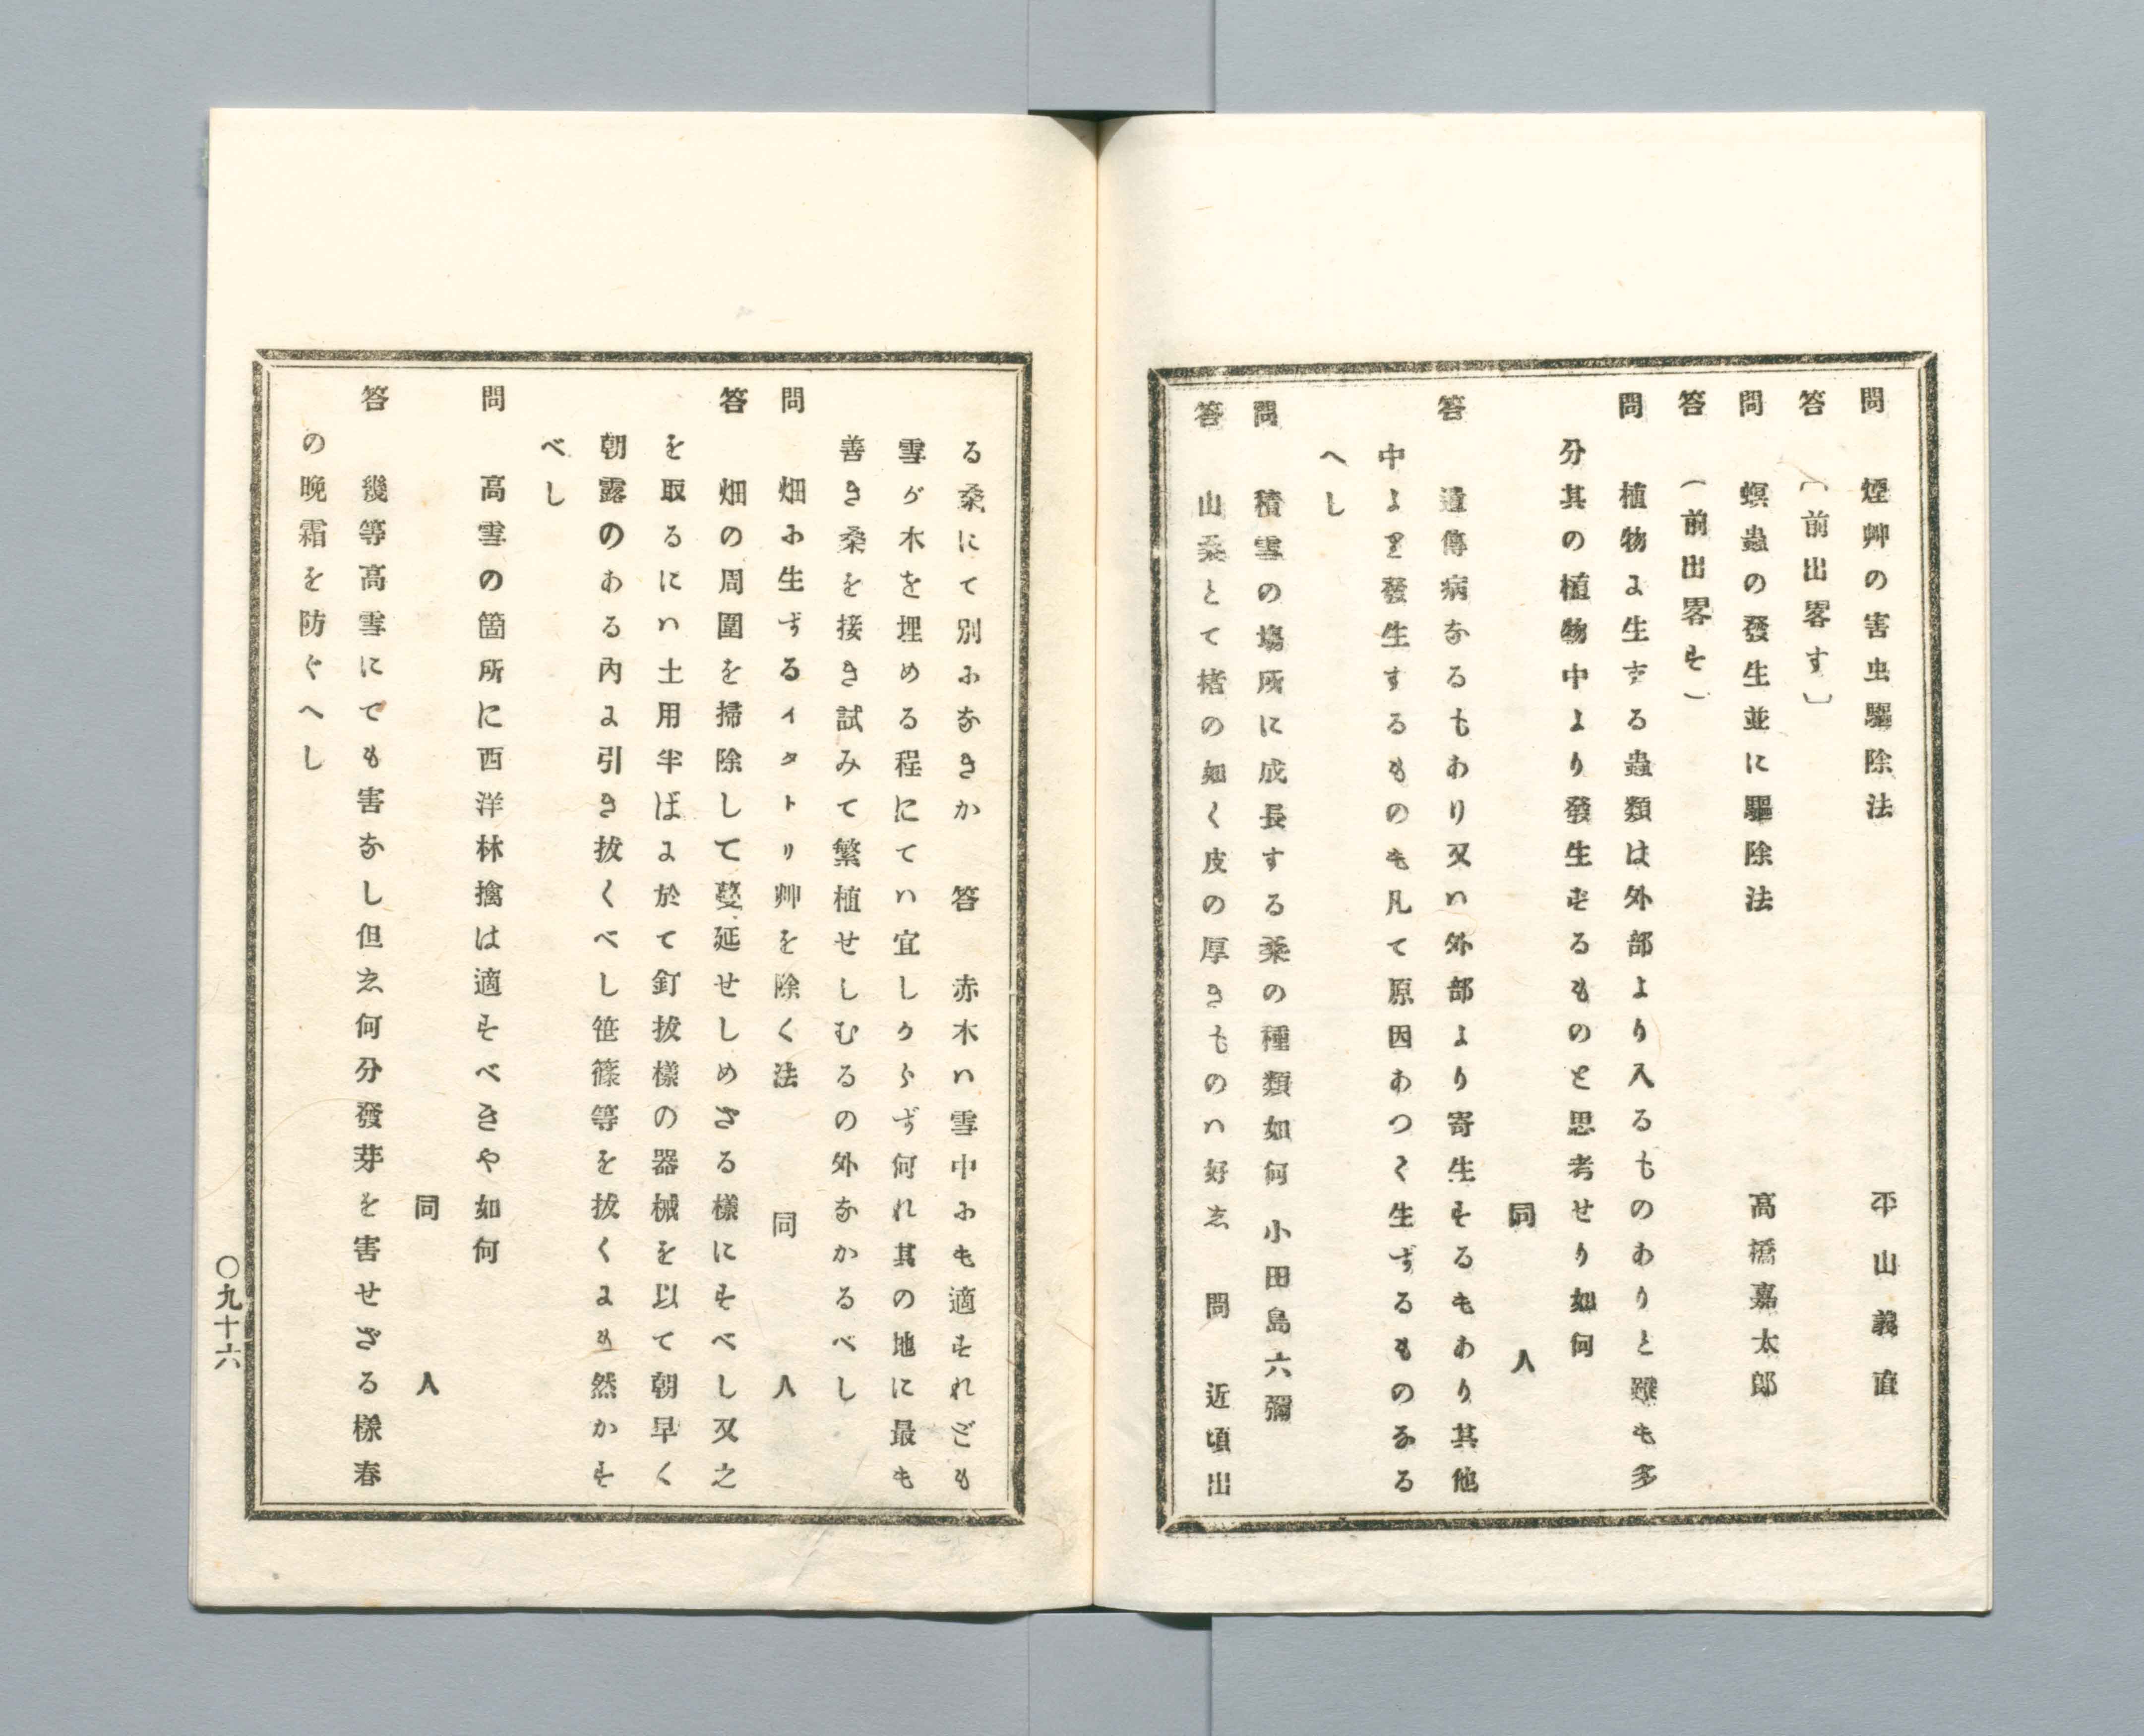 問　煙艸の害虫驅除法　平山義直
答　〔前出畧す〕
問　螟蟲の發生並に驅除法　高橋嘉太郎
答　（前出畧す）
問　植物に生ずる蟲類は外部より入るものありと雖も多
分其の植物中より發生するものと思考せり如何
同人
答　遺傳病なるもあり又ハ外部より寄生するもあり其他
中より發生するものも凡て原因あつく生ずるものなる
へし
問　積雪の塲所に成長する桑の種類如何　小田島六彌
答　山桑とて楮の如く皮の厚きものハ好し　問　近頃出
る桑にて別になきか　答　赤木ハ雪中にも適すれども
雪が木を埋める程にてハ宜しからず何れ其の地に最も
善き桑を接き試みて繁植せしむるの外なかるべし
問　畑に生ずるイタトリ艸を除く法　同人
答　畑の周圍を掃除して蔓延せしめざる樣にすべし又之
を取るにハ土用半ばに於て釘拔樣の器械を以て朝早く
朝露のある內に引き拔くべし笹篠等を拔くにも然かす
べし
問　高雪の箇所に西洋林擒は適すべきや如何
同人
答　幾等高雪にても害なし但し何分發芽を害せざる樣春
の晩霜を防ぐへし
〇九十六